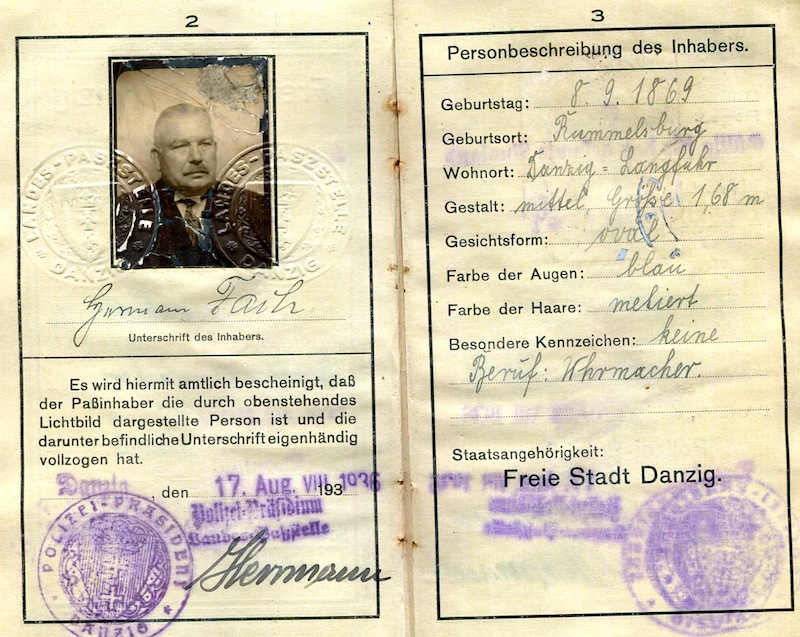 2
LANDES-PASSZTELLE
DANZIG
LANDES-PASZTELLE
DANZIG
Hermann
Unterschrift des Inhabers.
Es wird hiermit amtlich bescheinigt, daß
der Paßinhaber die durch obenstehendes
Lichtbild dargestellte Person ist und die
darunter befindliche Unterschrift eigenhändig
vollzogen hat.
Danzig, den 17. Aug. VIII. 1936 193
Polizei-Präsidium
POLIZEI-PRÄSIDENT
DANZIG
Herrmann
3
Personbeschreibung des Inhabers.
Geburtstag: 8. 9. 1869
Geburtsort: Rummelsburg
Wohnort: Danzig=Langfuhr
Gestalt: mittel, Größe 1,68 m
Gesichtsform: oval
Farbe der Augen: blau
Farbe der Haare: meliert
Besondere Kennzeichen: keine
Beruf: Uhrmacher.
Staatsangehörigkeit:
Freie Stadt Danzig.